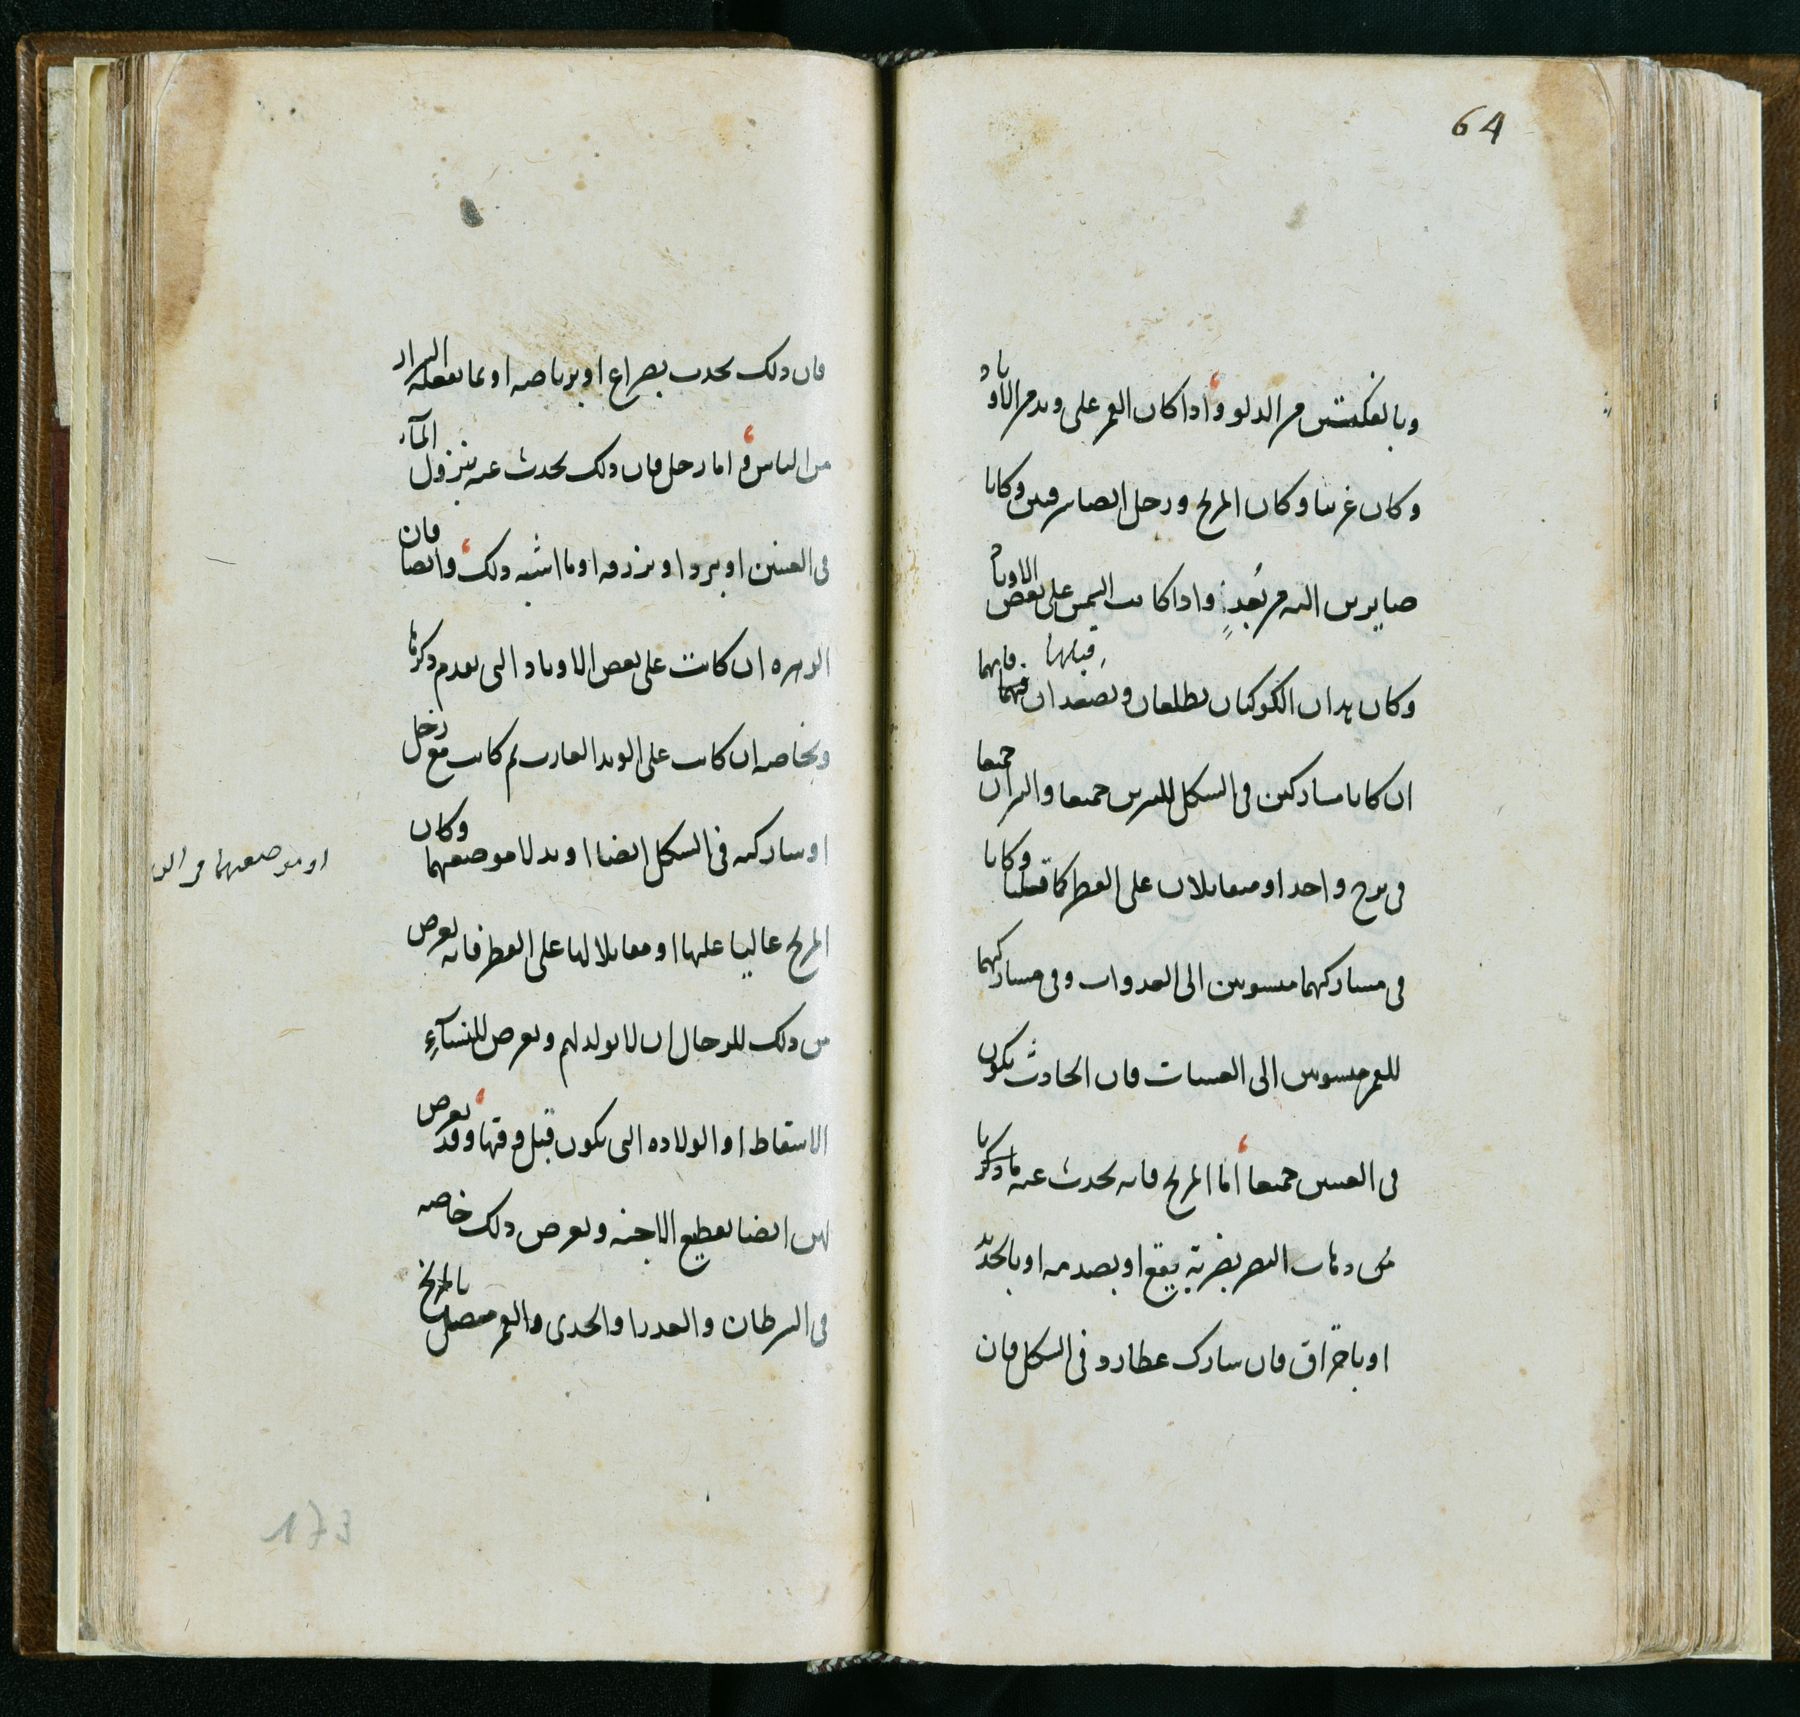 64
وبالفكتين من الدلو واذا كان القمر على وتد من الاوتاد
وكان غربيا وكان المريخ وزحل ايضا شرقيين وكانا
صايرين اليه من بُعدٍ واذا كانت الشمس على بعض الاوتاد
وكان هذان الكوكبان يطلعان ويصعدان قبلها فانهما
ان كانا مشاركين في الشكل للنيرين جميعا والنيران جميعا
في برج واحد او متقابلان على القطر كما قلنا وكانا
في مشاركتهما منسوبين الى الغدوات وفي مشاركتهما
للقمر منسوبين الى العشيات فان الحادث يكون
في العينين جميعا اما المريخ فانه يحدث عنه ما ذكرنا
من ذهاب البصر بضربة يقع او بصدمه او بالحديد
او باحتراق فان شارك عطارد في الشكل فان
فان ذلك يحدث بصراع او برياضه او بما يفعله الشرار
من الناس و اما زحل فان ذلك يحدث عنه بنزول المآء
في العينين او ببرد او بزرقه او ما اشبه ذلك وايضا فان
الزهره ان كانت على بعض الاوتاد التي تقدم ذكرنا
وبخاصه ان كانت على الوتد الغارب ثم كانت مع زحل
او شاركته في الشكل ايضا او بدلا موضعهما وكان
او موضعهما من
المريخ عاليا عليها او مقابلا لها على القطر فانه يعرض
من ذلك للرجال ان لا يولد لهم ويعرض للنسآءِ
الاسقاط او الولاده التي تكون قبل وقتها وقد يعرض
لهن ايضا تقطيع الاجنه ويعرض ذلك خاصه
في السرطان والعذرا والجدي والقمر متصل بالمريخ
173